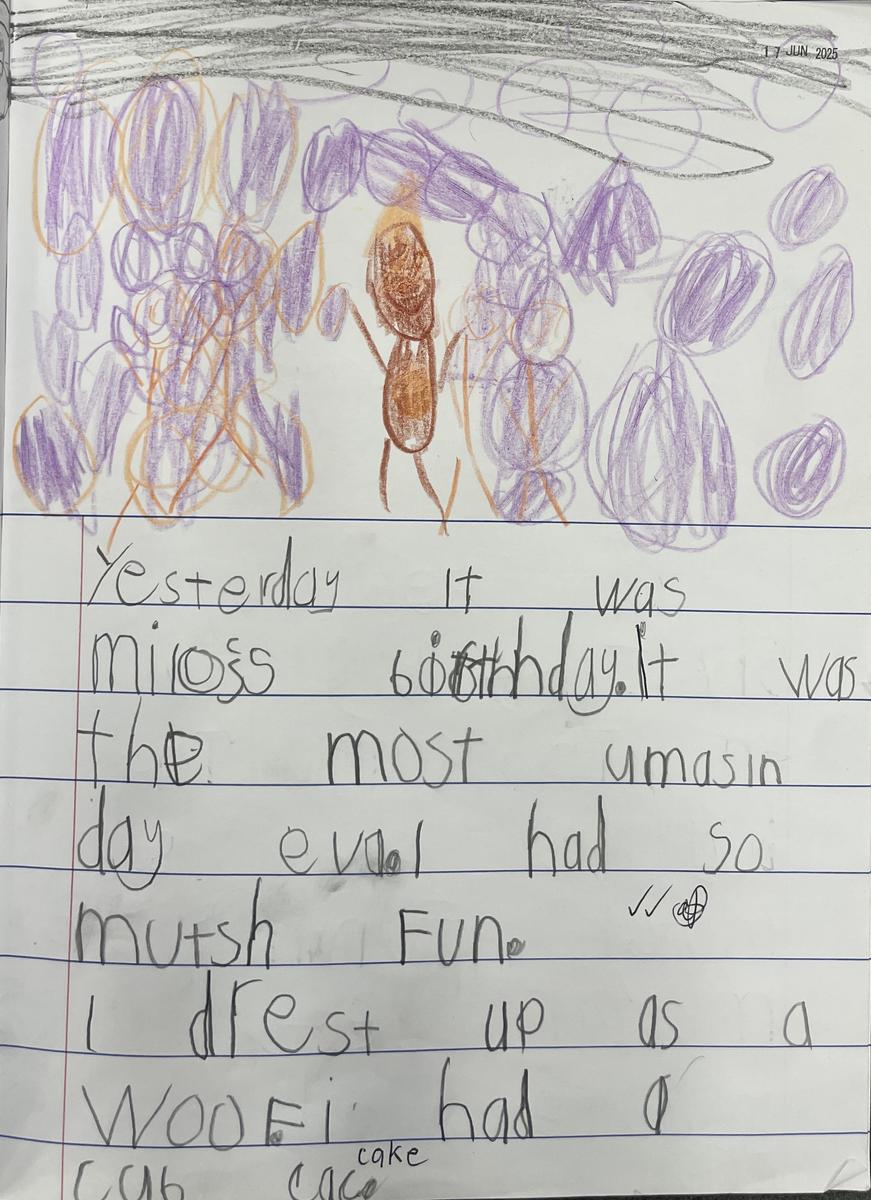 17 JUN 2025
Yesterday It was
miloss birthday. It was
the most umasin
day eva. I had so
mutsh Fun.
I drest up as a
WOOF. i had a
cake
cub cace